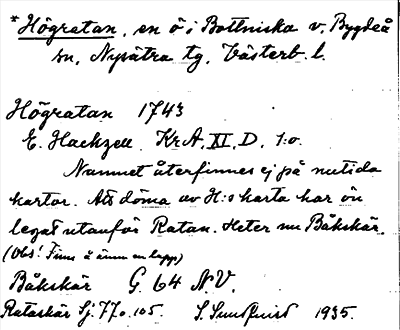 *Högratan, en ö i Bottniska v. Bygdeå
sn, Nysätra tg, Västerb. l.
Högratan 1743
E. Hackzell KrA, XI, D, 1:o.
Namnet återfinnes ej på nutida
kartor. Att döma av H:s karta har ön
legat utanför Ratan. Heter nu Båkskär.
(Obs! Finns å ännu en lapp)
Båkskär G. 64 N.V.
Rataskär Sj. 77 o. 105. S. Sundqvist 1935.